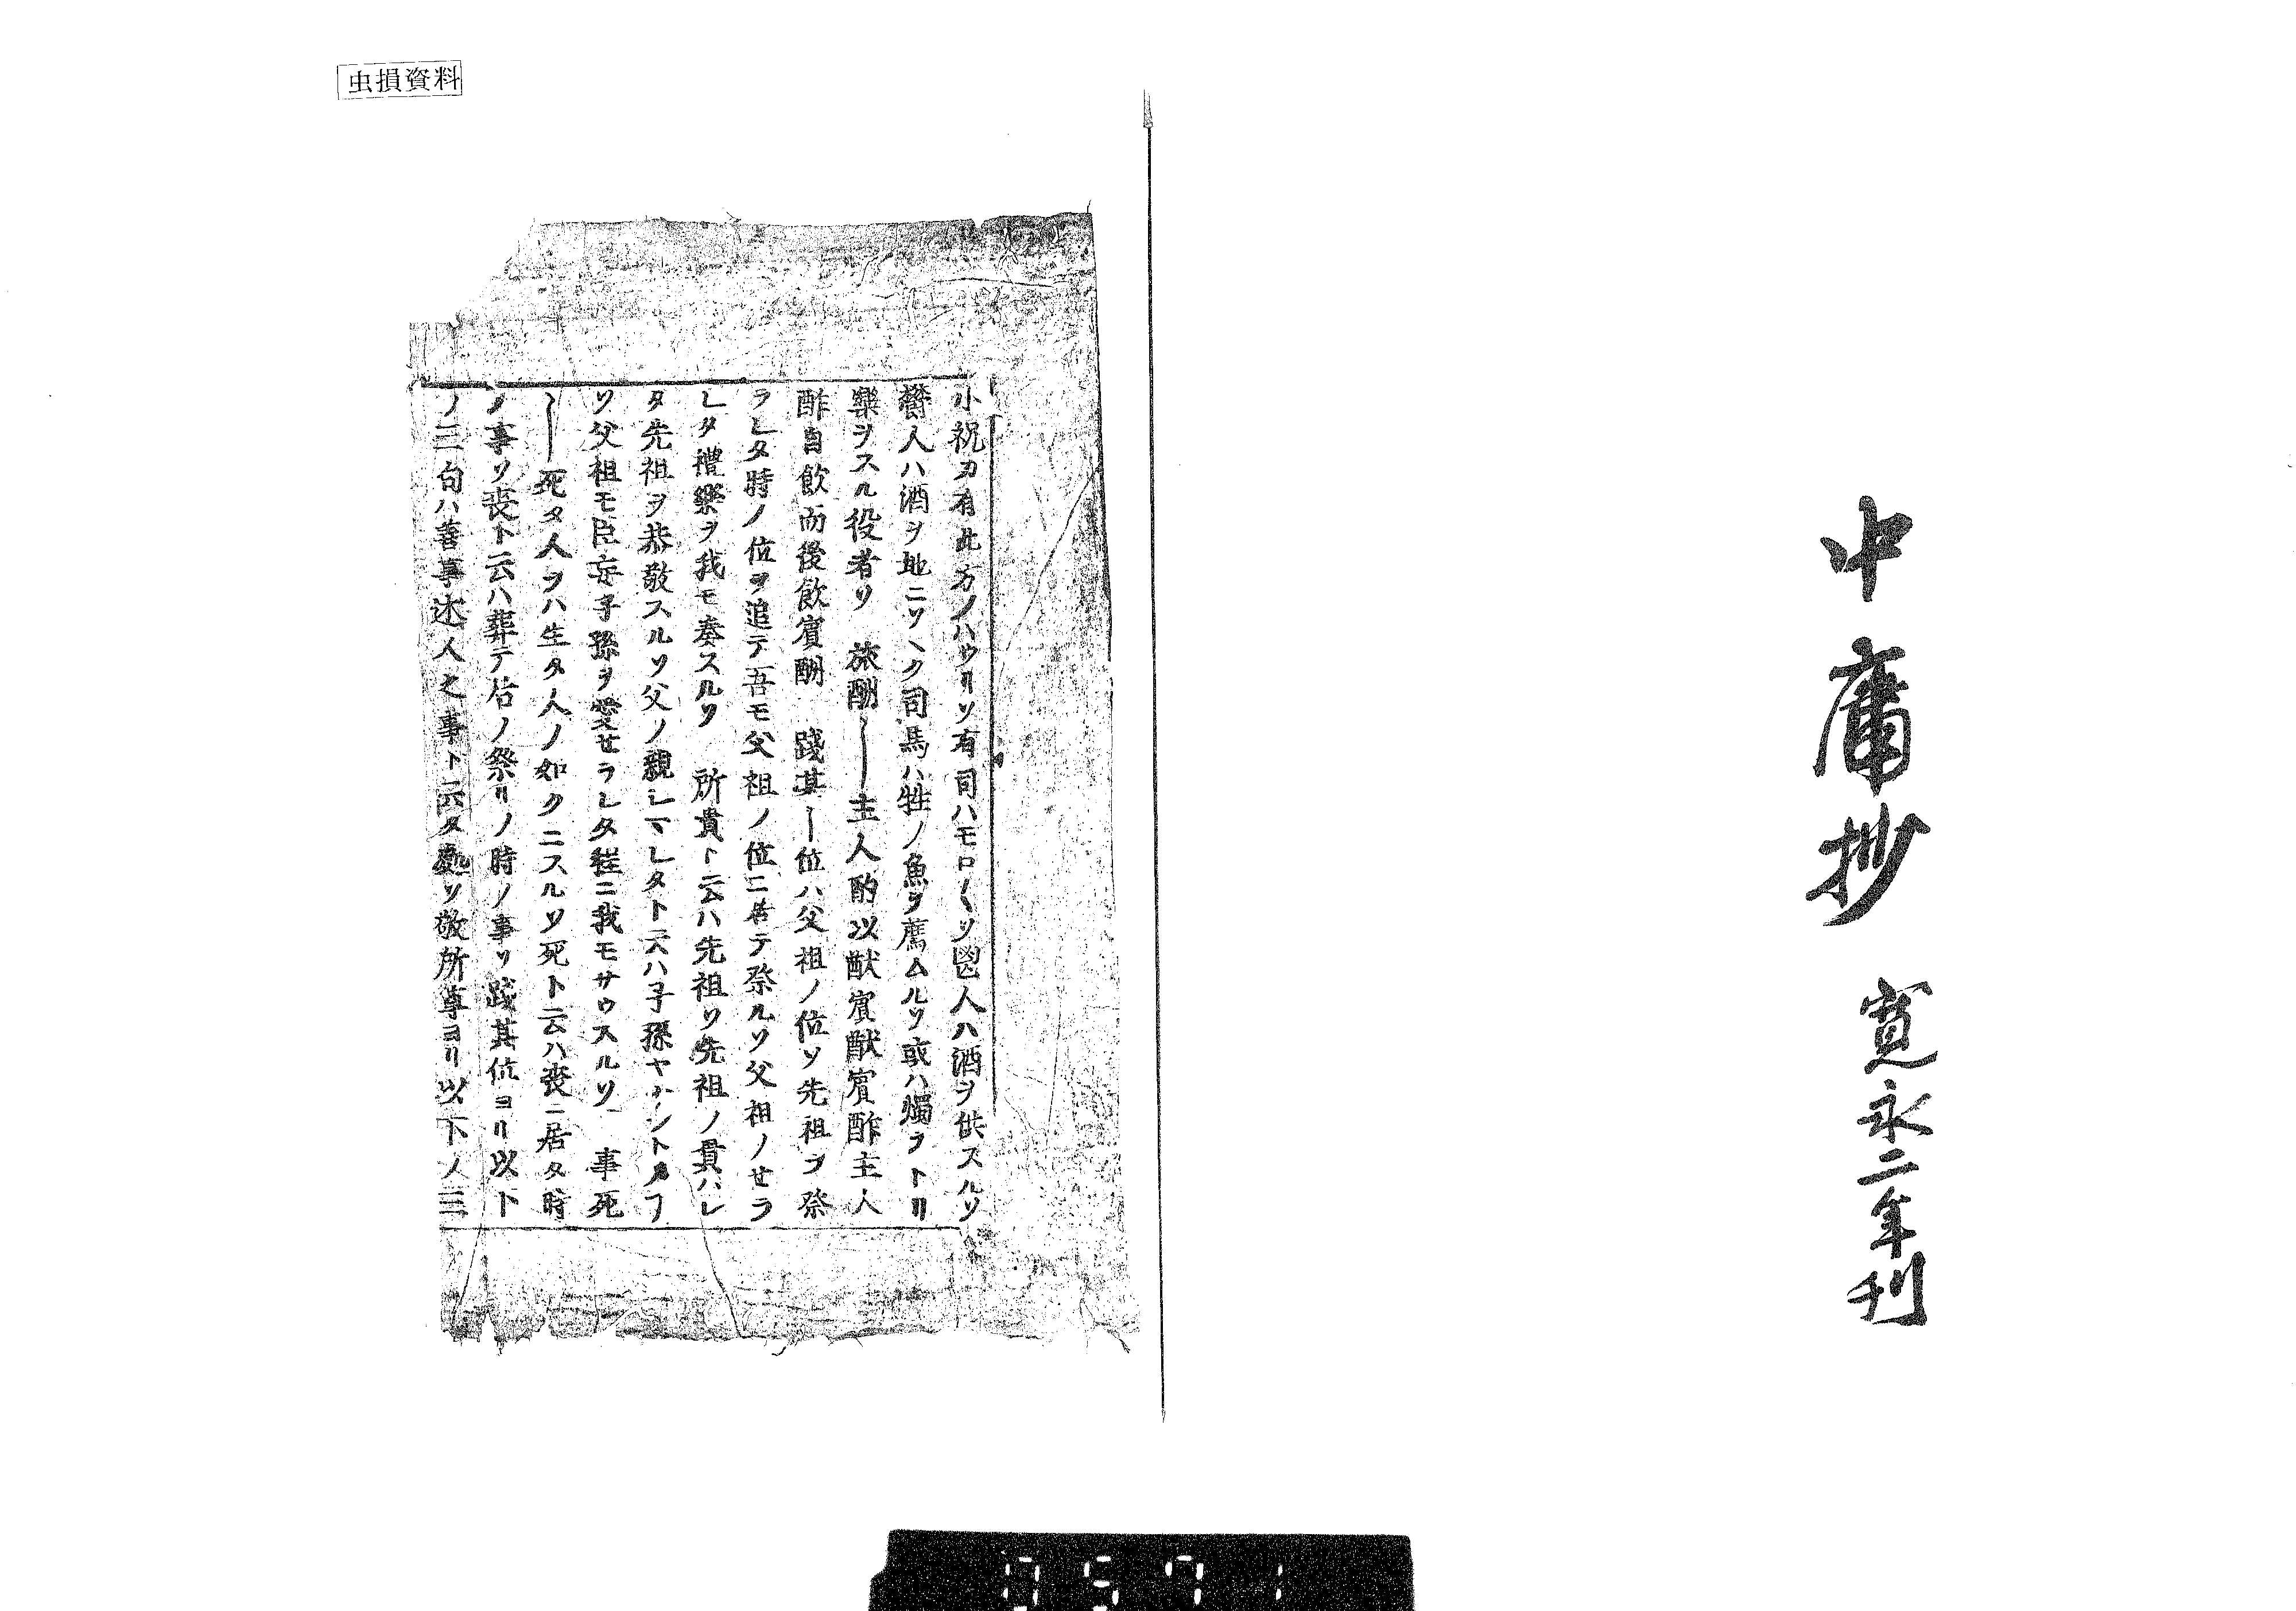 虫損資料
中庸抄 寛永二年刊
小祝カ有此方ノハウリソ有司ハモロ〱ソ鬯人ハ酒ヲ供スルソ
欝人ハ酒ヲ地ニソヽク司馬ハ牲ノ魚ヲ薦ムルソ或ハ燭ヲトリ
樂ヲスル役者ソ 旅酬〻―主人酌以献賓献賓酢主人
酢自飲而後飲賓酬 踐其―位ハ父祖ノ位ソ先祖ヲ祭
ラレタ時ノ位ヲ追テ吾モ父祖ノ位ニ居テ祭ルソ父祖ノせラ
レタ禮樂ヲ我モ奏スルソ 所貴ト云ハ先祖ソ先祖ノ貴ハレ
タ先祖ヲ恭敬スルソ父ノ親レマレタト云ハ子孫ヤ
ソ父祖モ臣妾子孫ヲ愛せラレタ程ニ我モサウスルソ 事死
〻―死タ人ヲハ生タ人ノ如クニスルソ死ト云ハ喪ニ居タ時
ノ事ソ喪ト云ハ葬テ后ノ祭リノ時ノ事ソ踐其位ヨリ以下
ノ三句ハ善事述人之事ト云タ處ソ敬所尊ヨリ以下ノ三
0571